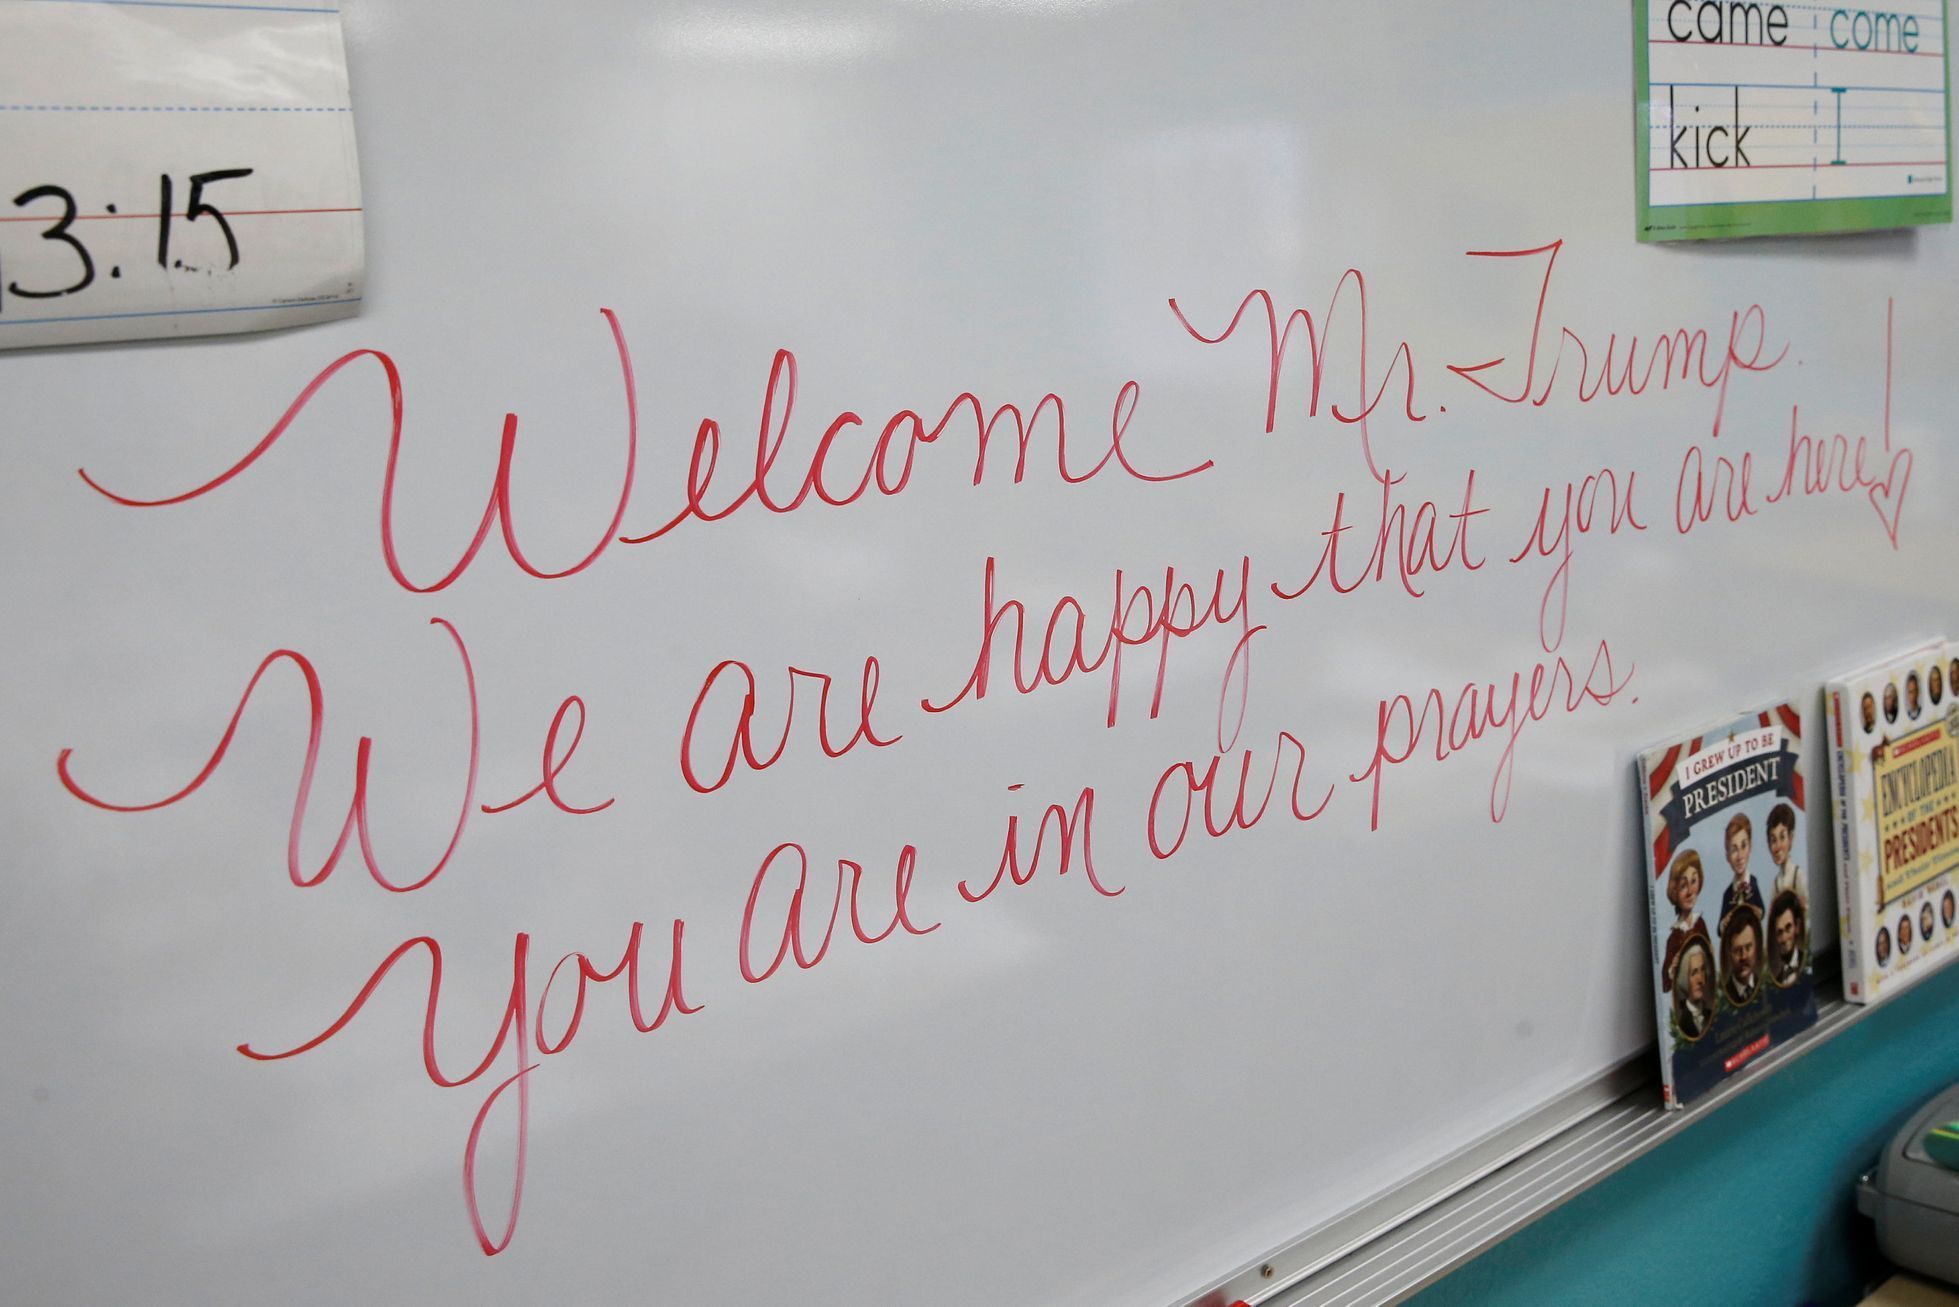 came come
kick I
3:15
Welcome Mr. Trump.
We are happy that you are here!
You are in our prayers.
I GREW UP TO BE
PRESIDENT
SCHOLASTIC
ENCYCLOPEDIA
OF THE
PRESIDENTS